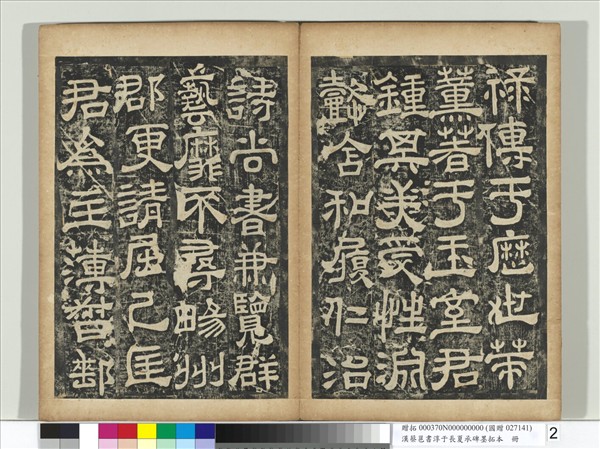 祿傳于歷世策
薰著于王室君
鍾其美受性淵
懿含和履仁治
詩尚書兼覽群
藝靡不尋暢州
郡更請屈己匡
君為主簿督郵
贈拓 000370N000000000 (國贈 027141)
漢蔡邕書淳于長夏承碑墨拓本 冊
2